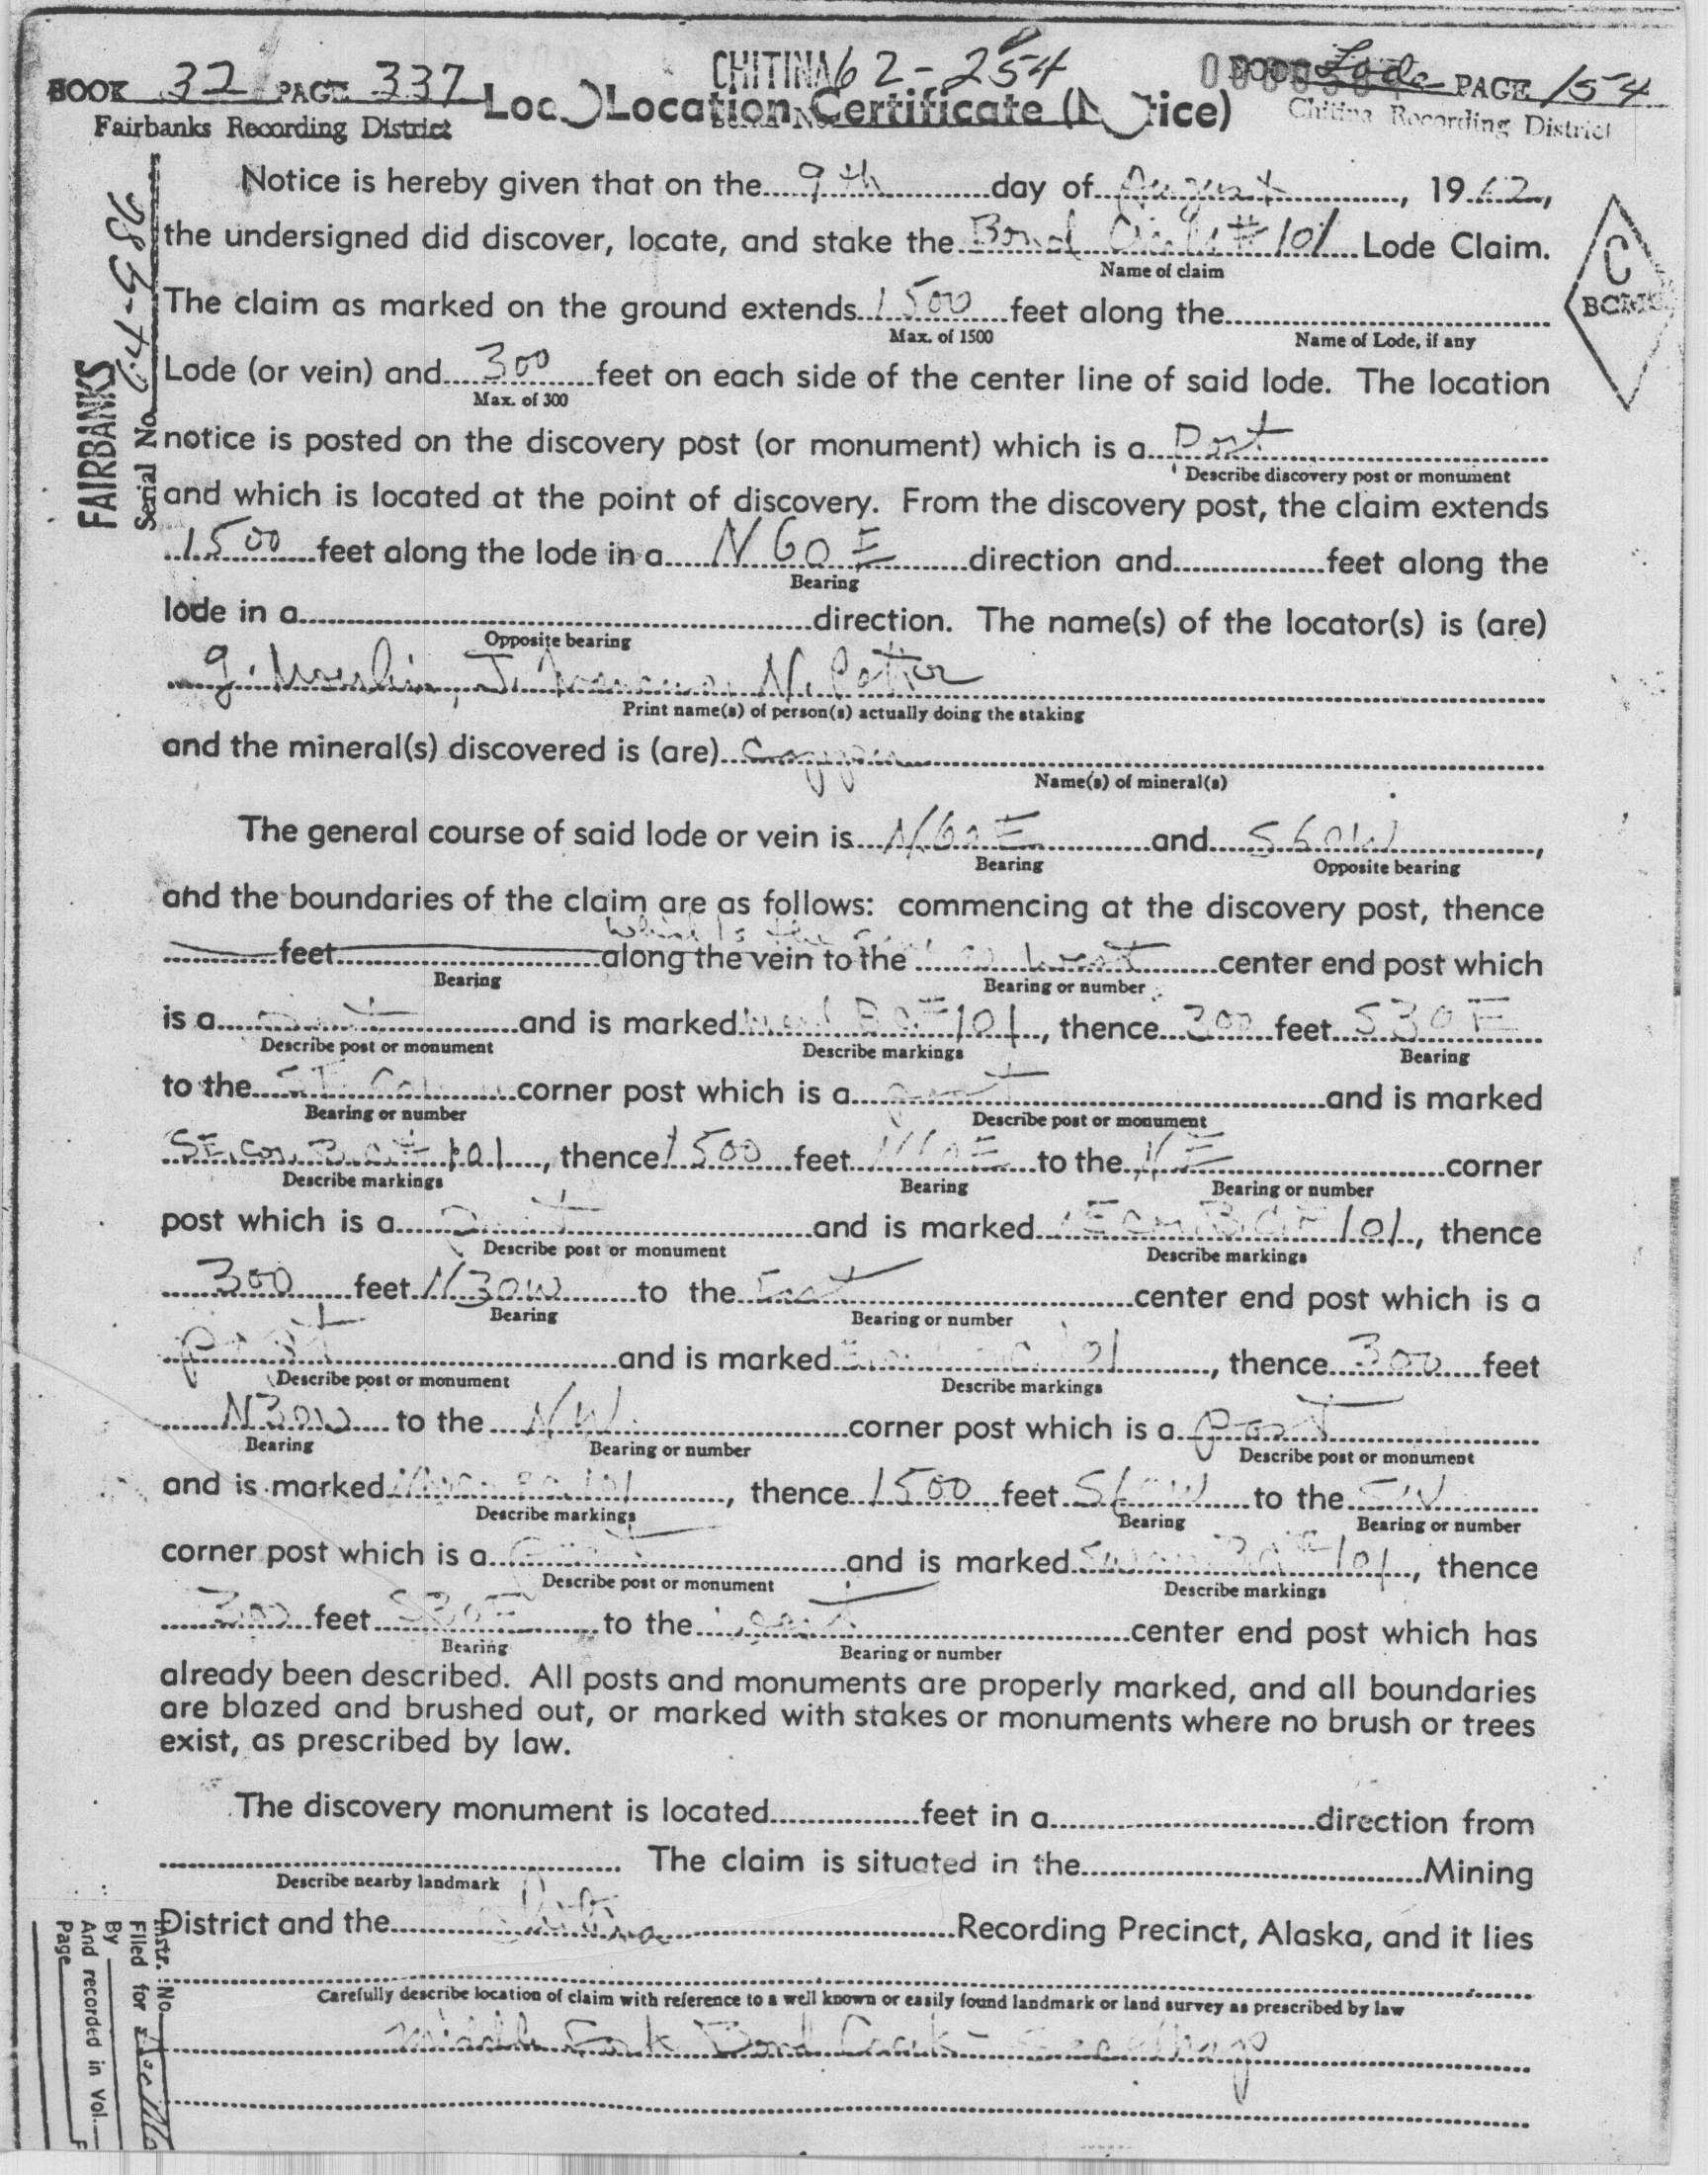 CHITINA 62-254
BOOK 32 PAGE 337
BOOK Lode PAGE 154
Fairbanks Recording District
Location Certificate
Chitina Recording District
FAIRBANKS
Serial No. 64-9986
Notice is hereby given that on the 9th day of August, 1962,
the undersigned did discover, locate, and stake the Bond #101 Lode Claim.
Name of claim
C
The claim as marked on the ground extends 1500 feet along the
Max. of 1500 Name of Lode, if any
Lode (or vein) and 300 feet on each side of the center line of said lode. The location
Max. of 300
notice is posted on the discovery post (or monument) which is a Post
Describe discovery post or monument
and which is located at the point of discovery. From the discovery post, the claim extends
1500 feet along the lode in a N 60 E direction and feet along the
Bearing
lode in a direction. The name(s) of the locator(s) is (are)
Opposite bearing
N. Potter
Print name(s) of person(s) actually doing the staking
and the mineral(s) discovered is (are) Copper
Name(s) of mineral(s)
The general course of said lode or vein is N60E and S60W,
Bearing Opposite bearing
and the boundaries of the claim are as follows: commencing at the discovery post, thence
which is the
feet along the vein to the west center end post which
Bearing Bearing or number
is a post and is marked 101, thence 300 feet S30E
Describe post or monument Describe markings Bearing
to the corner post which is a post and is marked
Bearing or number Describe post or monument
SE Cor 101, thence 1500 feet N60E to the NE corner
Describe markings Bearing Bearing or number
post which is a post and is marked 101, thence
Describe post or monument Describe markings
300 feet N30W to the East center end post which is a
Bearing Bearing or number
post and is marked 101, thence 300 feet
Describe post or monument Describe markings
N30W to the NW corner post which is a post
Bearing Bearing or number Describe post or monument
and is marked 101, thence 1500 feet S60W to the SW
Describe markings Bearing Bearing or number
corner post which is a post and is marked 101, thence
Describe post or monument Describe markings
300 feet S30E to the west center end post which has
Bearing Bearing or number
already been described. All posts and monuments are properly marked, and all boundaries
are blazed and brushed out, or marked with stakes or monuments where no brush or trees
exist, as prescribed by law.
The discovery monument is located feet in a direction from
The claim is situated in the Mining
Describe nearby landmark
District and the Chitina Recording Precinct, Alaska, and it lies
Carefully describe location of claim with reference to a well known or easily found landmark or land survey as prescribed by law
Middle Fork Bond Creek -
Instr. No.
Filed for
By
And recorded in Vol.
Page